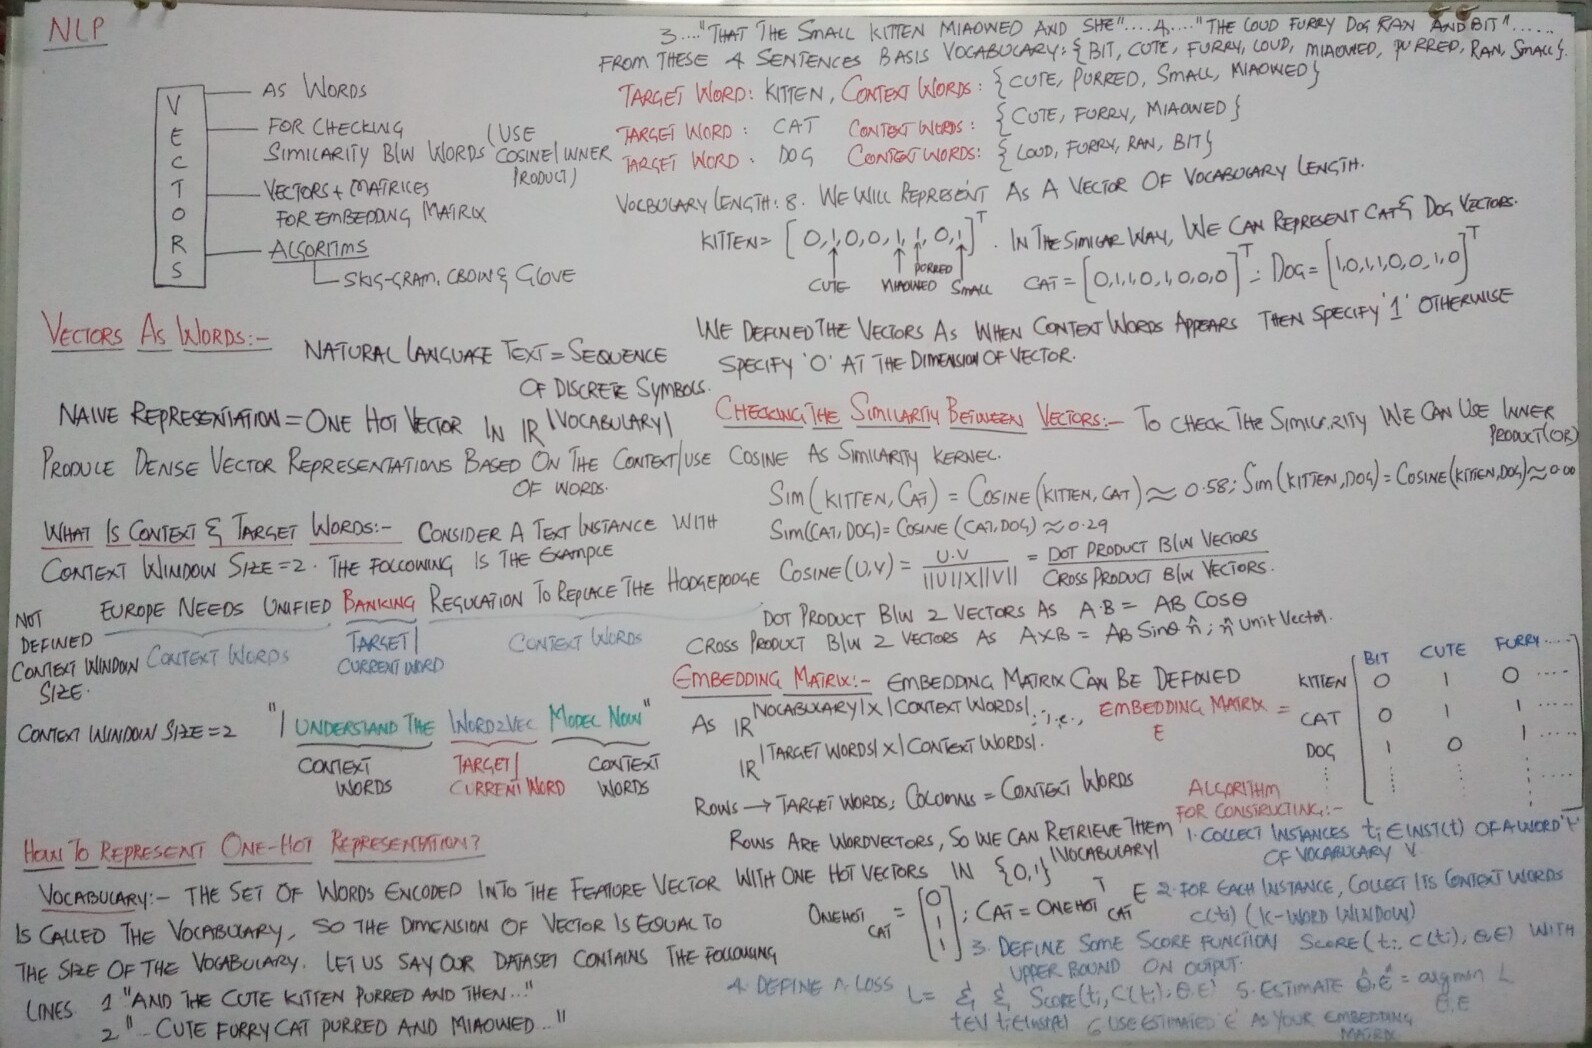 NLP
VECTORS
AS WORDS
FOR CHECKING
SIMILARITY B/W WORDS (USE COSINE/INNER PRODUCT)
VECTORS + MATRICES
FOR EMBEDDING MATRIX
ALGORITMS
SKIG-GRAM, CBOW & GLOVE
VECTORS AS WORDS:-
NATURAL LANGUAGE TEXT = SEQUENCE
OF DISCRETE SYMBOLS.
NAIVE REPRESENTATION = ONE HOT VECTOR IN IR^|VOCABULARY|
PRODUCE DENSE VECTOR REPRESENTATIONS BASED ON THE CONTEXT/USE COSINE AS SIMILARITY KERNEL.
OF WORDS.
WHAT IS CONTEXT & TARGET WORDS:- CONSIDER A TEXT INSTANCE WITH
CONTEXT WINDOW SIZE=2. THE FOLLOWING IS THE EXAMPLE
NOT DEFINED CONTEXT WINDOW SIZE.
EUROPE NEEDS UNIFIED BANKING REGULATION TO REPLACE THE HODGEPODGE
CONTEXT WORDS
TARGET/
CURRENT WORD
CONTEXT WORDS
CONTEXT WINDOW SIZE=2 "I UNDERSTAND THE WORD2VEC MODEL NOW"
CONTEXT WORDS
TARGET/
CURRENT WORD
CONTEXT WORDS
HOW TO REPRESENT ONE-HOT REPRESENTATION?
VOCABULARY:- THE SET OF WORDS ENCODED INTO THE FEATURE VECTOR
IS CALLED THE VOCABULARY, SO THE DIMENSION OF VECTOR IS EQUAL TO
THE SIZE OF THE VOCABULARY. LET US SAY OUR DATASET CONTAINS THE FOLLOWING
LINES. 1 "AND THE CUTE KITTEN PURRED AND THEN..."
2 "-- CUTE FURRY CAT PURRED AND MIAOWED .."
3...."THAT THE SMALL KITTEN MIAOWED AND SHE"....4...."THE LOUD FURRY DOG RAN AND BIT"......
FROM THESE 4 SENTENCES BASIS VOCABULARY: {BIT, CUTE, FURRY, LOUD, MIAOWED, PURRED, RAN, SMALL}.
TARGET WORD: KITTEN, CONTEXT WORDS: {CUTE, PURRED, SMALL, MIAOWED}
TARGET WORD: CAT CONTEXT WORDS: {CUTE, FURRY, MIAOWED}
TARGET WORD: DOG CONTEXT WORDS: {LOUD, FURRY, RAN, BIT}
VOCBULARY LENGTH: 8. WE WILL REPRESENT AS A VECTOR OF VOCABULARY LENGTH.
KITTEN = [0,1,0,0,1,1,0,1]^T. IN THE SIMILAR WAY, WE CAN REPRESENT CAT & DOG VECTORS.
CUTE MIAOWED PURRED SMALL
CAT = [0,1,1,0,1,0,0,0]^T; DOG = [1,0,1,1,0,0,1,0]^T
WE DEFINED THE VECTORS AS WHEN CONTEXT WORDS APPEARS THEN SPECIFY '1' OTHERWISE
SPECIFY 'O' AT THE DIMENSION OF VECTOR.
CHECKING THE SIMILARTIY BETWEEN VECTORS:- TO CHECK THE SIMILARITY WE CAN USE INNER
PRODUCT(OR)
SIM(KITTEN, CAT) = COSINE(KITTEN, CAT) ≈ 0.58; SIM(KITTEN, DOG) = COSINE(KITTEN, DOG) ≈ 0.00
SIM(CAT, DOG) = COSINE(CAT, DOG) ≈ 0.29
COSINE(U,V) = U.V / ||U||X||V|| = DOT PRODUCT B/W VECTORS / CROSS PRODUCT B/W VECTORS.
DOT PRODUCT B/W 2 VECTORS AS A.B = AB COSθ
CROSS PRODUCT B/W 2 VECTORS AS AXB = AB Sinθ n̂; n̂ Unit Vector.
EMBEDDING MATRIX:- EMBEDDING MATRIX CAN BE DEFINED
AS IR^|VOCABULARY| X |CONTEXT WORDS|; i.e., EMBEDDING MATRIX E =
IR^|TARGET WORDS| X |CONTEXT WORDS|.
BIT CUTE FURRY ....
KITTEN 0 1 0 ....
CAT 0 1 1 ....
DOG 1 0 1 ....
ROWS → TARGET WORDS; COLUMNS = CONTEXT WORDS
ROWS ARE WORDVECTORS, SO WE CAN RETRIEVE THEM
WITH ONE HOT VECTORS IN {0,1}^|VOCABULARY|
ONEHOT CAT = [0 1 1 1]; CAT = ONEHOT^T CAT E
ALGORITHM
FOR CONSTRUCTING:-
1. COLLECT INSTANCES ti ∈ INST(t) OF A WORD 't'
OF VOCABULARY V.
2. FOR EACH INSTANCE, COLLECT ITS CONTEXT WORDS
C(ti) (K-WORD WINDOW)
3. DEFINE SOME SCORE FUNCTION SCORE(ti, C(ti), θ, E) WITH
UPPER BOUND ON OUTPUT.
4. DEFINE A LOSS L = Σ t∈V Σ ti∈Inst(t) SCORE(ti, C(ti), θ, E)
5. ESTIMATE θ̂, Ê = argmin θ,E L
6. USE ESTIMATED 'E' AS YOUR EMBEDDING
MATRIX